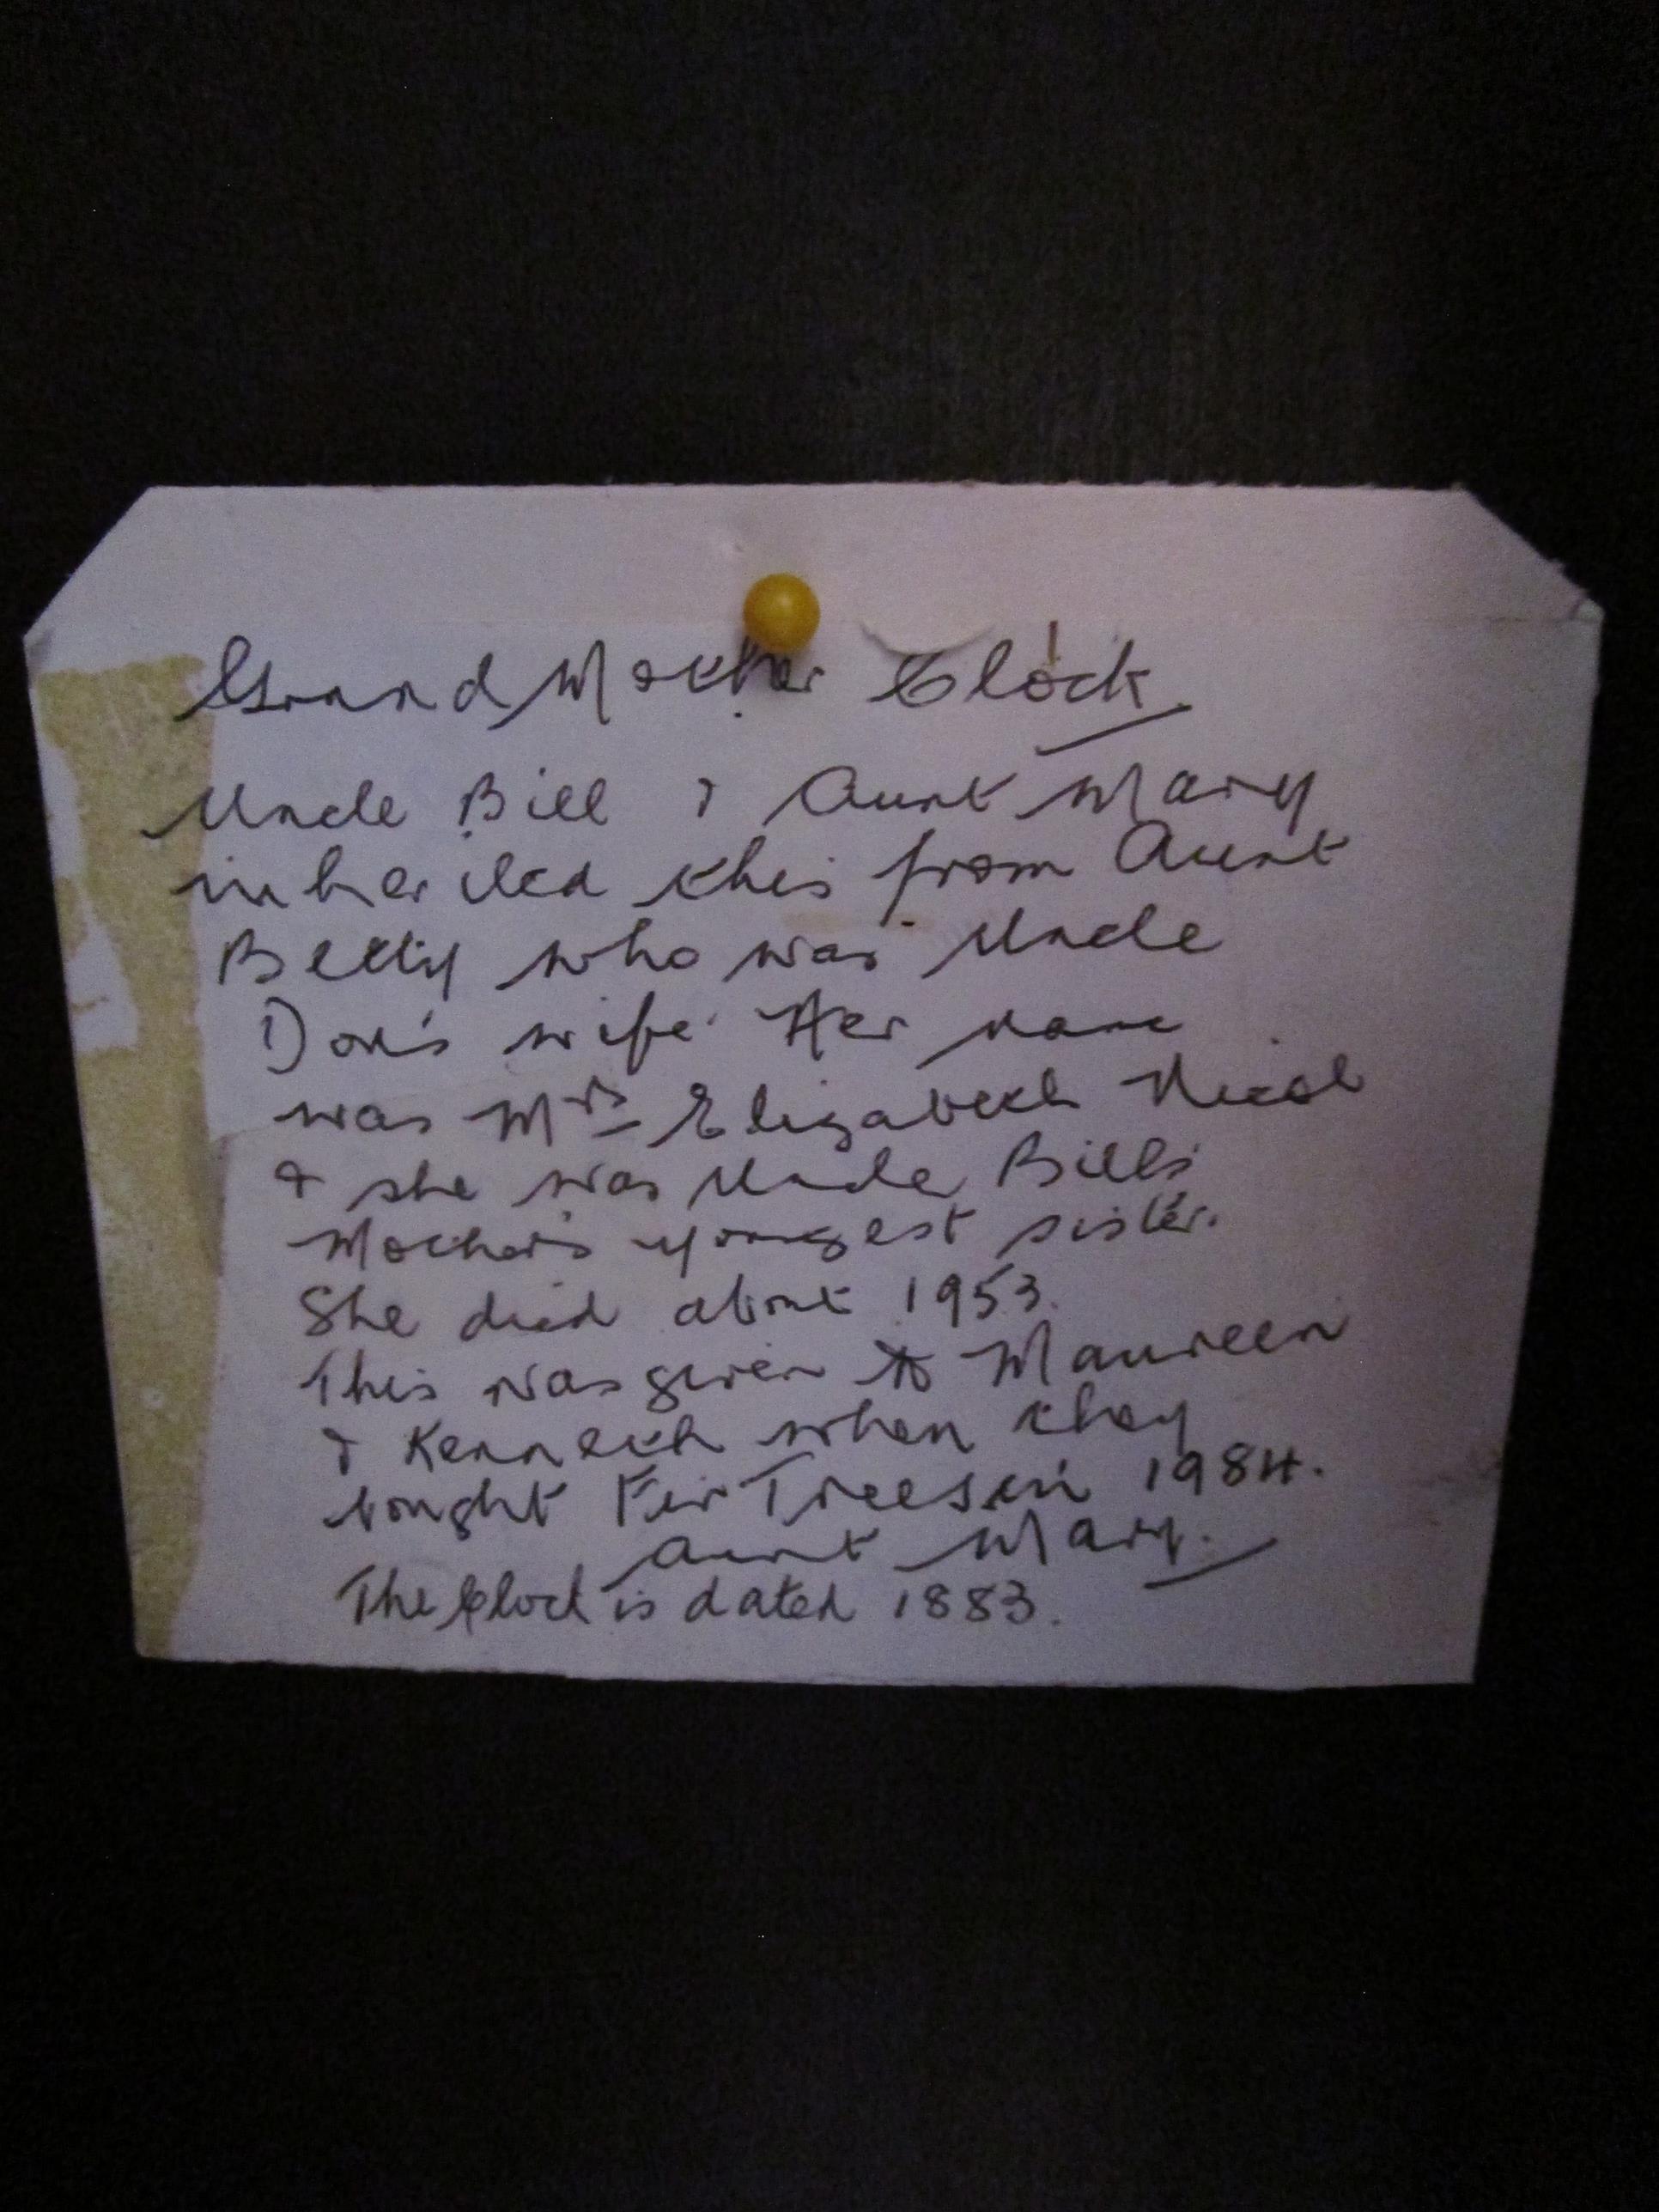 Grand Mother Clock
Uncle Bill & Aunt Mary
inherited this from Aunt
Betty who was Uncle
Don's wife. Her name
was Mrs Elizabeth Nicol
& she was Uncle Bill's
Mother's youngest sister.
She died about 1953.
This was given to Maureen
& Kenneth when they
bought Fir Trees in 1984.
Aunt Mary.
The Clock is dated 1883.